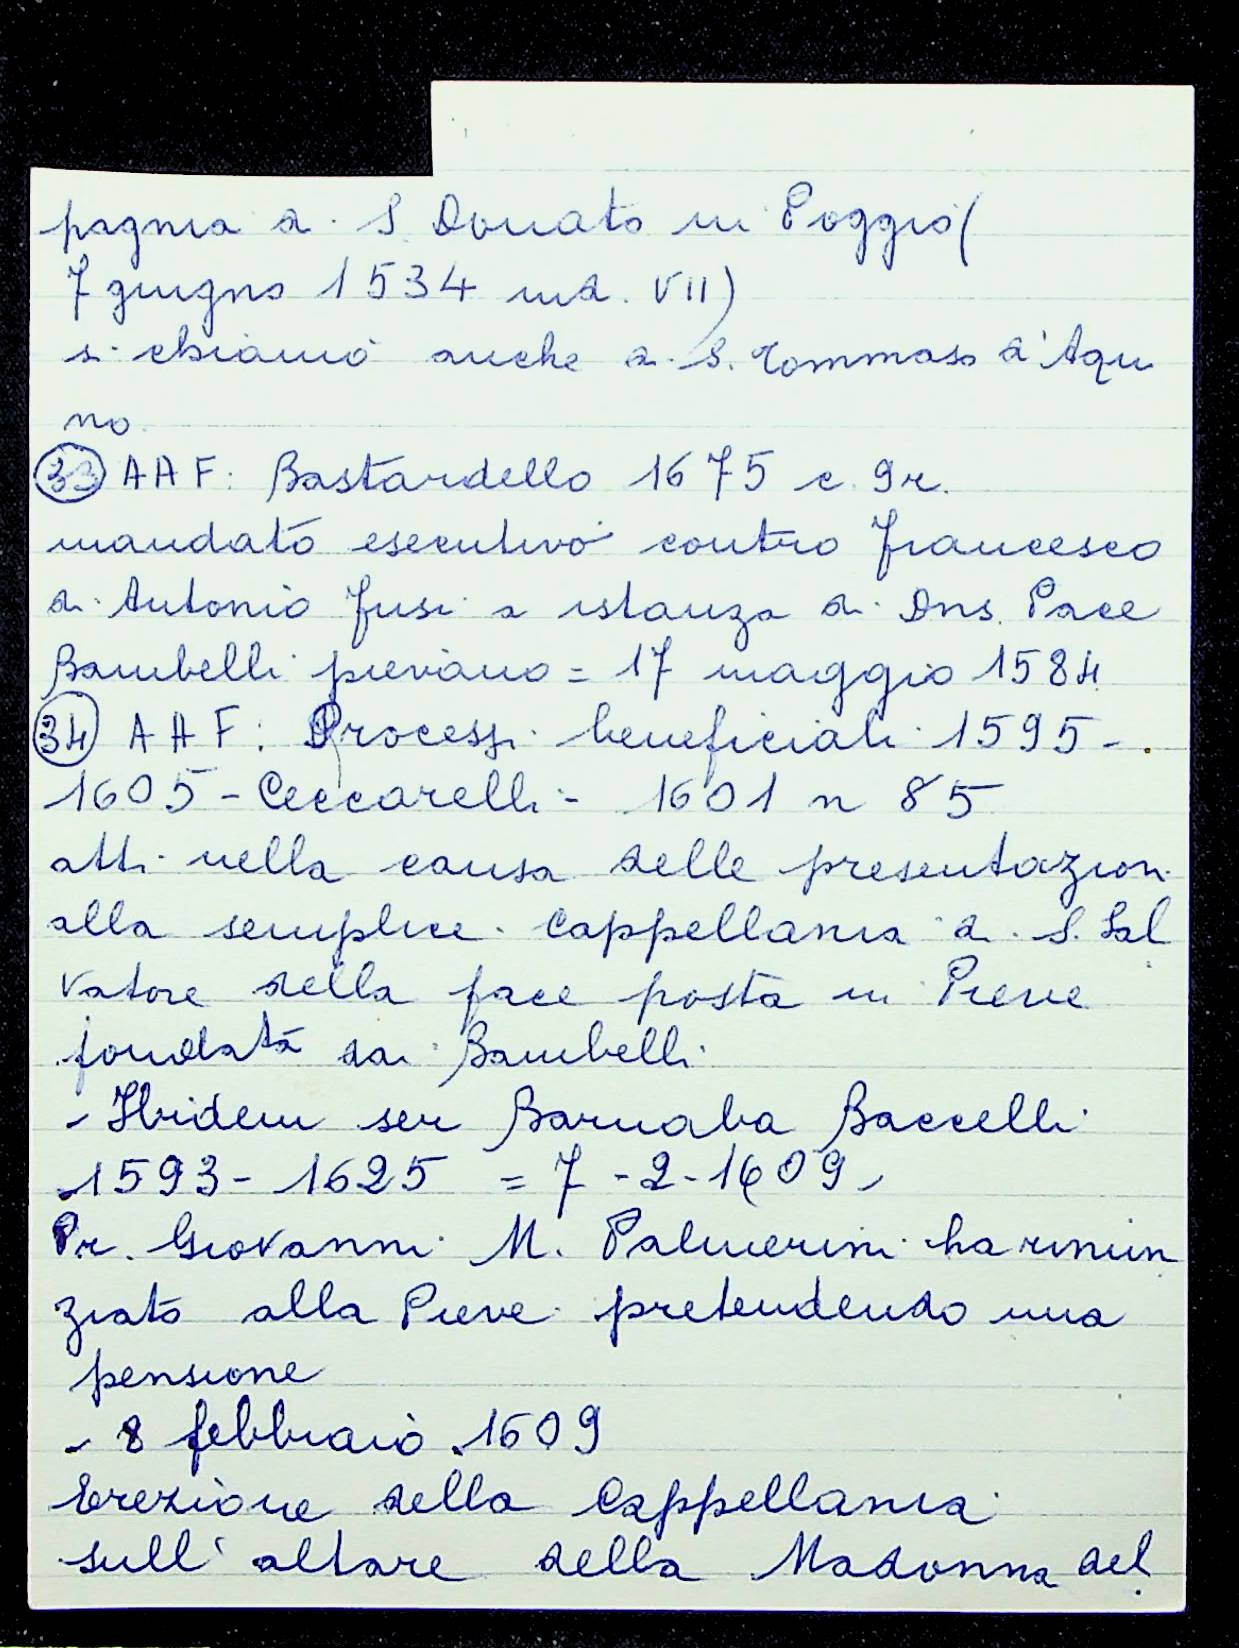 pagnia di S. Donato in Poggio (
7 giugno 1534 ind. VII)
si chiamò anche di S. Tommaso d'Aqui
no
33 AAF: Bastardello 1675 c. 9r.
mandato esecutivo contro Francesco
di Antonio Fusi a istanza di Dns. Pace
Bambelli pievano = 17 maggio 1584
34 AAF: Processi beneficiali 1595-
1605 - Ceccarelli - 1601 n 85
atti nella causa delle presentazioni
alla semplice cappellania di S. Sal
vatore della face posta in Pieve
fondata dai Bambelli
- Ibidem ser Barnaba Baccelli
1593 - 1625 = 7 - 2 - 1609
Pr. Giovanni M. Palmerini ha rinun
ziato alla Pieve pretendendo una
pensione
- 8 febbraio 1609
Erezione della Cappellania
sull'altare della Madonna del